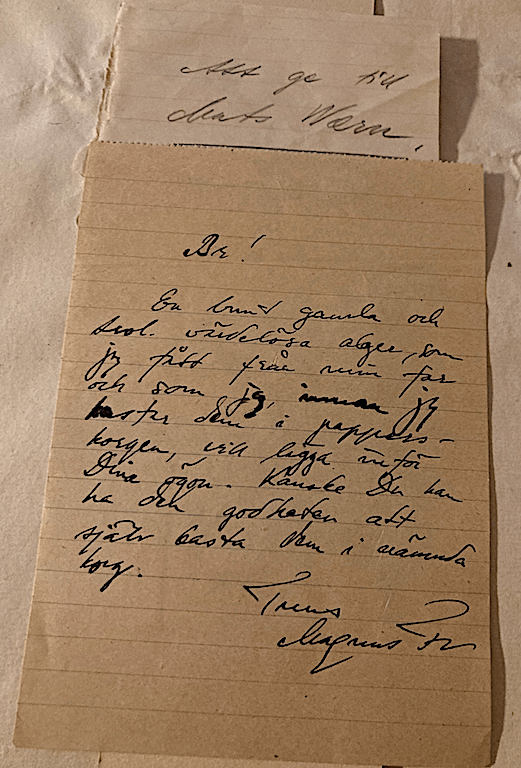 Att ge till
Mats Wærn.
Br!
En bunt gamla och
trol. värdelösa alger, som
jag fått från min far
och som jag, innan jag
kastar dem i pappers-
korgen, vill lägga inför
Dina ögon. Kanske Du kan
ha den godheten att
själv kasta dem i nämnda
korg.
Magnus Fr